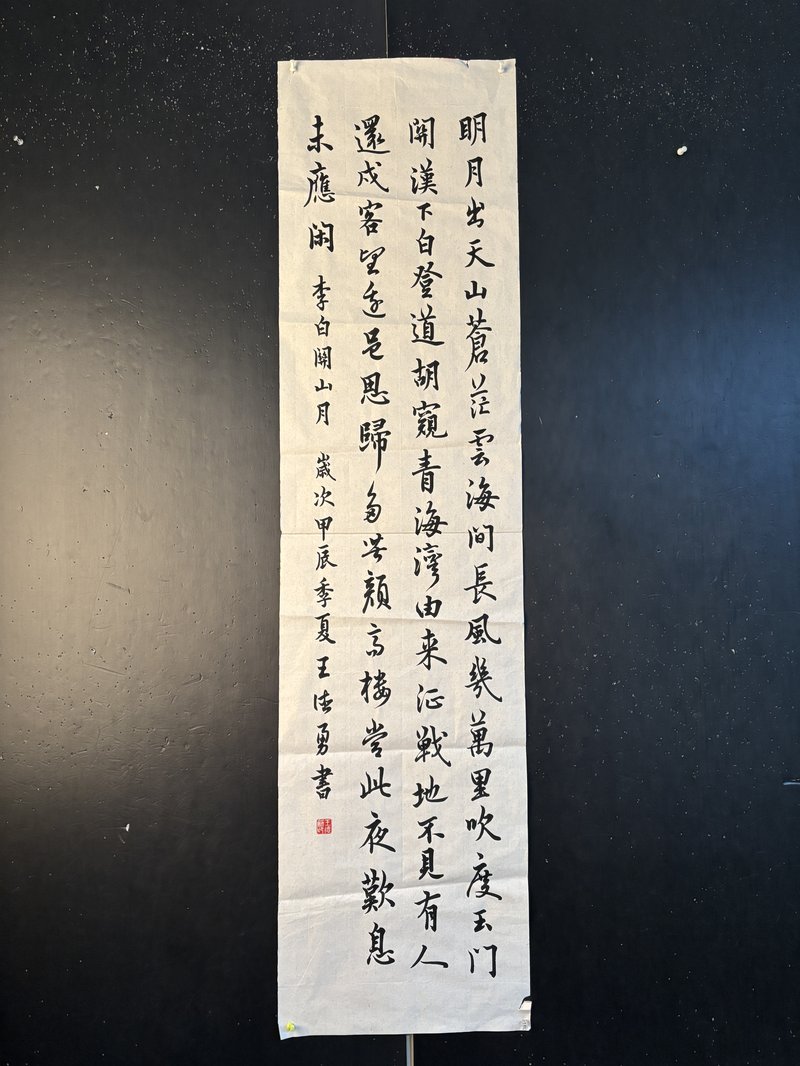 明月出天山蒼茫雲海间長風幾萬里吹度玉门
開漢下白登道胡窺青海灣由来征戰地不見有人
還戍客望邊邑思歸多苦顏高樓當此夜歎息
未應闲 李白開山月 歲次甲辰季夏王德勇書